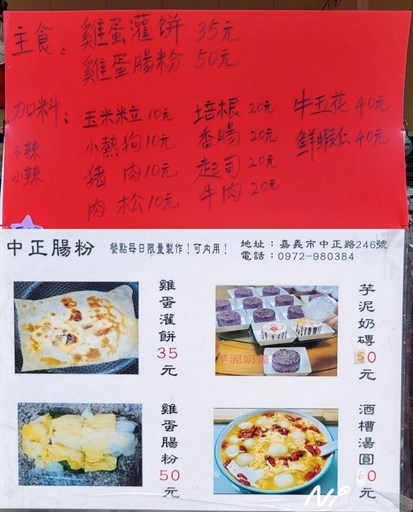 主食： 雞蛋灌餅 35元
雞蛋腸粉 50元
加料： 玉米粒10元 培根20元 牛五花40元
不辣 小熱狗10元 香腸20元 鮮蝦仁40元
小辣 豬肉10元 起司20元
肉松10元 牛肉20元
中正腸粉 餐點每日限量製作！可內用！ 地址：嘉義市中正路246號
電話：0972-980384
雞蛋灌餅35元
芋泥奶磚50元
芋泥奶磚
雞蛋腸粉50元
酒糟湯圓60元